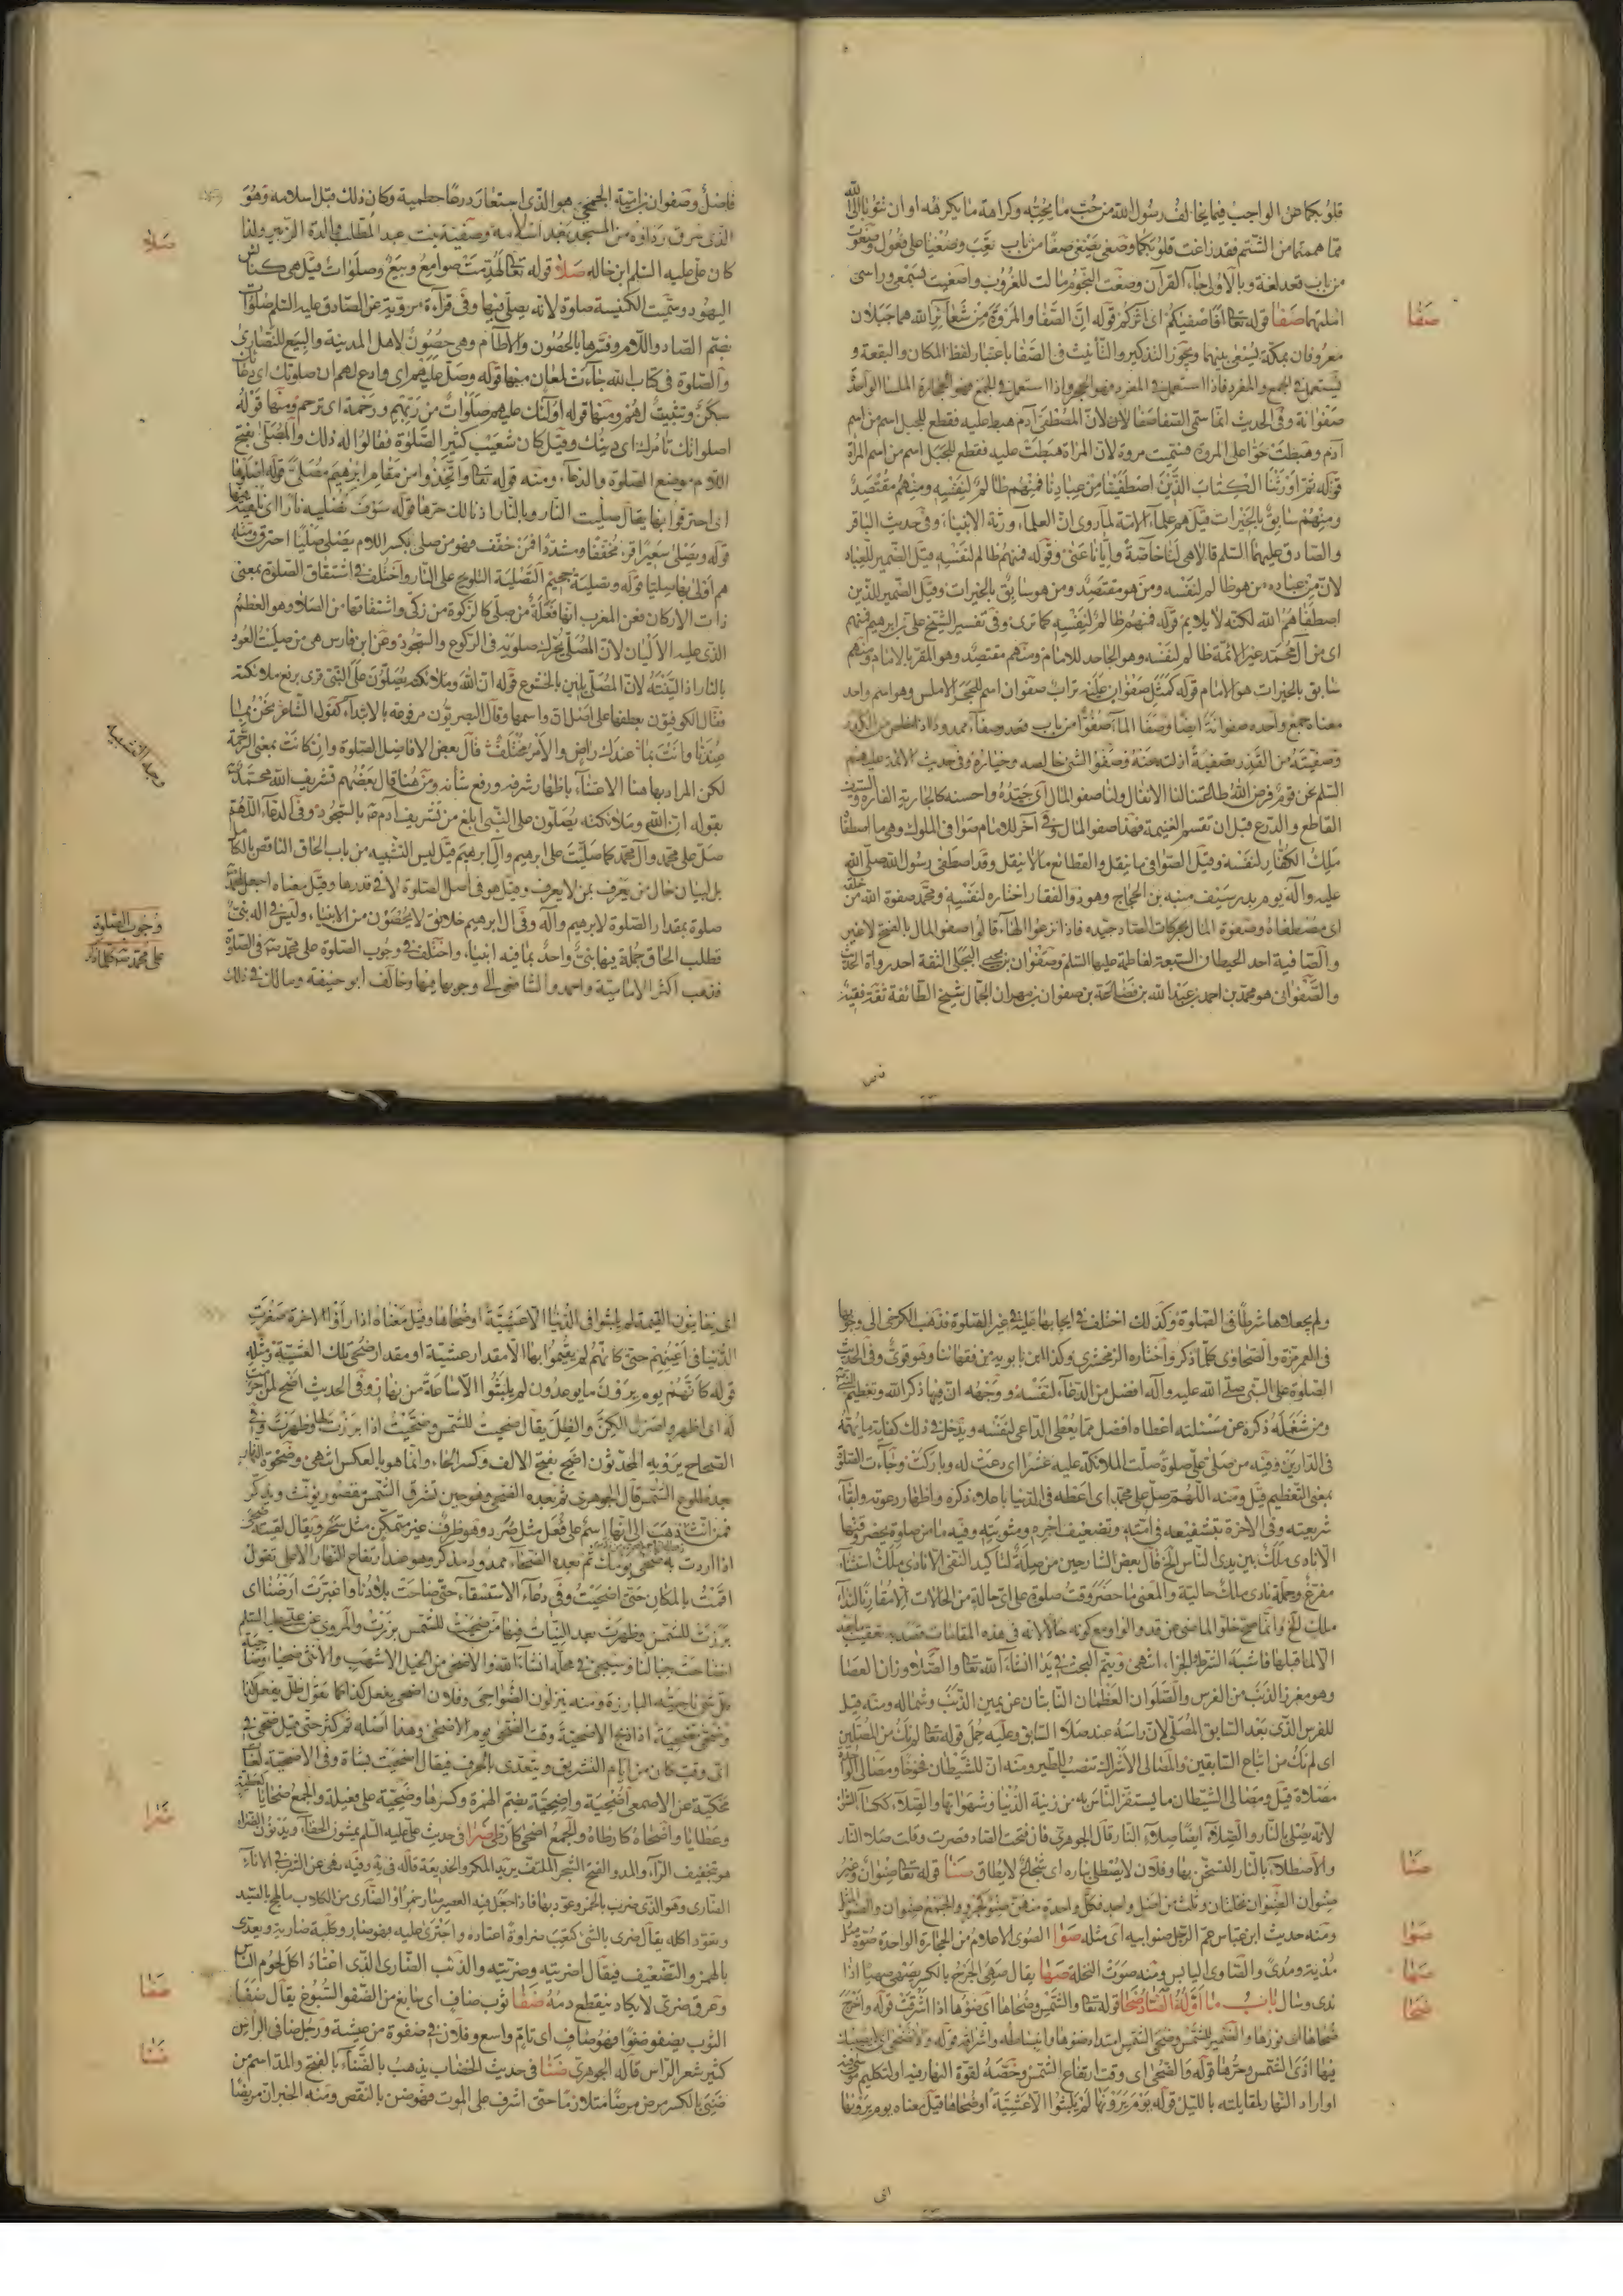 قلوبكما عن الواجب فيما يخالف رسول الله من حب ما يحبه وكراهة ما يكرهه او ان تتوبا الى الله
مما هممتما من الشم فقد زاغت قلوبكما وصغى يصغى صغا من باب تعب وصغيا على فعول وصغوت
من باب قعد لغة وبالاولى جاء القرآن وصغت النجوم مالت للغروب واصغيت بسمعى وراسى
املتهما صفا قوله تعا افاصفيكم اى آثركم قوله ان الصفا والمروة من شعائر الله هما جبلان
صفا
معروفان بمكة يسعى بينهما ويجوز التذكير والتأنيث فى الصفا باعتبار لفظ المكان والبقعة و
يستعمل فى الجمع والمفرد فاذا استعمل فى المفرد فهو الحجر واذا استعمل فى الجمع فهو الحجارة الملسا الواحدة
صفوانة وفى الحديث انما سمى الصفا صفا لان المصطفى آدم هبط عليه فقطع للجبل اسم من اسم
آدم وهبطت حوا على المروة فسميت مروة لان المراة هبطت عليه فقطع للجبل اسم من اسم المراة
قوله ثم اورثنا الكتاب الذين اصطفينا من عبادنا فمنهم ظالم لنفسه ومنهم مقتصد
ومنهم سابق بالخيرات قيل هم علماء الامة لما روى ان العلماء ورثة الانبياء وفى حديث الباقر
والصادق عليهما السلم قالا هى لنا خاصة وايانا عنى وقوله فمنهم ظالم لنفسه قيل الضمير للعباد
لان من عباده من هو ظالم لنفسه ومن هو مقتصد ومن هو سابق بالخيرات وقيل الضمير للذين
اصطفاهم الله لكنه لا يلايم قوله فمنهم ظالم لنفسه كما ترى وفى تفسير الشيخ على بن ابرهيم فمنهم
اى من آل محمد غير الائمة ظالم لنفسه وهو الجاحد للامام ومنهم مقتصد وهو المقر بالامام ومنهم
سابق بالخيرات هو الامام قوله كمثل صفوان عليه تراب صفوان اسم للحجر الاملس وهو اسم واحد
معناه جمع واحده صفوانة ايضا وصفا الماء صفوا من باب قعد وصفاء ممدودا اذا خلص من الكدر
وصفيته من القذر تصفية ازلته عنه وصفو الشئ خالصه وخياره وفى حديث الائمة عليهم
السلم نحن قوم فرض الله طاعتنا لنا الانفال ولنا صفو المال اى جيده واحسنه كالجارية الفاره والسيف
القاطع والدرع قبل ان تقسم الغنيمة فهذا صفو المال وفى آخر للامام صوافى الملوك وهى ما اصطفا
ملك الكفار لنفسه وقيل الصوافى ما ينقل والقطائع ما لا ينقل وقد اصطفى رسول الله صلى الله
عليه وآله يوم بدر سيف منبه بن الحجاج وهو ذو الفقار اختاره لنفسه ومحمد صفوة الله من خلقه
اى مصطفاه وصفوة المال بحركات الصاد جيده فاذا نزعوا الهاء قالوا صفو المال بالفتح لا غير
والصافية احد الحيطان السبعة لفاطمة عليها السلم وصفوان بن يحيى البجلى الثقة احد رواة الحديث
والصفوانى هو محمد بن احمد بن عبد الله بن قضاعة بن صفوان بن مهران الجمال شيخ الطائفة ثقة فقيه
فاض
فاضل وصفوان بن امية الجمحى هو الذى استعار درعا حطمية وكان ذلك قبل اسلامه وهو
الذى سرق رداؤه من المسجد بعد اسلامه وصفية بنت عبد المطلب والدة الزبير ولذا
كان على عليه السلم ابن خاله صلا قوله تعا لهدمت صوامع وبيع وصلوات قيل هى كنائس
صلا
اليهود وسميت الكنيسة صلوة لانه يصلى فيها وفى قراءة مروية عن الصادق عليه السلم صلوات
بضم الصاد واللام وفسرها بالحصون والآطام وهى حصون لاهل المدينة والبيع للنصارى
والصلوة فى كتاب الله جاءت لمعان منها قوله وصل عليهم اى وادع لهم ان صلوتك اى دعاءك
سكن وتثبيت لهم ومنها قوله اولئك عليهم صلوات من ربهم ورحمة اى ترحم ومنها قوله
اصلواتك تأمرك اى دينك وقيل كان شعيب كثير الصلوة فقالوا له ذلك والمصلى بفتح
اللام موضع الصلوة والدعاء ومنه قوله تعا واتخذوا من مقام ابرهيم مصلى قوله اصلوها
اى احترقوا بها يقال صليت النار وبالنار اذا نالك حرها قوله سوف نصليه نارا اى نلقيه فيها
قوله ويصلى سعيرا قرئ مخففا ومشددا فمن خفف فهو من صلى بكسر اللام يصلى صليا احترق ومثله
هم اولى بها صليا قوله وتصلية جحيم التصلية التلويح على النار واختلف فى اشتقاق الصلوة بمعنى
ذات الاركان فعن المغرب انها فعلة من صلى كالزكوة من زكى واشتقاقها من الصلا وهو العظم
الذى عليه الاليان لان المصلى يحرك صلويه فى الركوع والسجود وعن ابن فارس هى من صليت العود
بالنار اذا لينته لان المصلى يلين بالخشوع قوله ان الله وملائكته يصلون على النبى قرئ برفع ملائكته
فقال الكوفيون بعطفها على اصل ان واسمها وقال البصريون مرفوعة بالابتداء كقول الشاعر نحن بما
عندنا وانت بما عندك راض والامر مختلف قال بعض الافاضل الصلوة وان كانت بمعنى الرحمة
لكن المراد بها هنا الاعتناء باظهار شرفه ورفع شأنه ومن هنا قال بعضهم تشريف الله محمدا
بقوله ان الله وملائكته يصلون على النبى ابلغ من تشريف آدم بالسجود وفى الدعاء اللهم
وجه التشبيه
صل على محمد وآل محمد كما صليت على ابرهيم وآل ابرهيم قيل ليس التشبيه من باب الحاق الناقص بالكامل
بل لبيان حال من يعرف بمن لا يعرف وقيل هو فى اصل الصلوة لا فى قدرها وقيل معناه اجعل لمحمد
صلوة بمقدار الصلوة لابرهيم وآله وفى آل ابرهيم خلائق لا يحصون من الانبياء وليس فى آله نبى
وجوب الصلوة
على محمد ص كلما ذكر
فطلب الحاق جملة فيها نبى واحد بما فيه انبياء واختلف فى وجوب الصلوة على محمد ص فى الصلوة
فذهب اكثر الامامية واحمد والشافعى الى وجوبها فيها وخالف ابو حنيفة ومالك فى ذلك
ولم يجعلاها شرطا فى الصلوة وكذلك اختلف فى ايجابها عليه فى غير الصلوة فذهب الكرخى الى وجوبها
فى العمر مرة والطحاوى كلما ذكر واختاره الزمخشرى وكذا ابن بابويه من فقهائنا وهو قوى وفى الحديث
الصلوة على النبى صلى الله عليه وآله افضل من الدعاء لنفسه ووجهه ان فيها ذكر الله وتعظيم النبى
ومن شغله ذكره عن مسئلته اعطاه افضل مما يعطى الداعى لنفسه ويدخل فى ذلك كفاية ما يهمه
فى الدارين وفيه من صلى على صلوة صلت الملائكة عليه عشرا اى دعت له وباركت وجاءت الصلوة
بمعنى التعظيم قيل ومنه اللهم صل على محمد اى اعظه فى الدنيا باعلاء ذكره واظهار دعوته وابقاء
شريعته وفى الآخرة بتشفيعه فى امته وتضعيف اجره ومثوبته وفيه ما من صلوة يحضر وقتها
الا نادى ملك بين يدى الناس الخ قال بعض الشارحين من صلة لتأكيد النفى الا نادى ملك استثناء
مفرغ وجملة نادى ملك حالية والمعنى ما حضر وقت صلوة على اى حالة من الحالات الا مقارنا لنداء
ملك الخ وانما صح خلو الماضى من قد والواو مع كونه حالا لانه فى هذه المقامات قصد به تعقيب ما بعد
الا لما قبلها فاشبه الشرط والجزاء انتهى ويتم البحث فى يدا انشاء الله تعا والصلا وزان العصا
وهو مغرز الذنب من الفرس والصلوان العظمان الناتيان عن يمين الذنب وشماله ومنه قيل
للفرس الذى بعد السابق المصلى لان راسه عند صلا السابق وعليه حمل قوله تعا لم نك من المصلين
اى لم نك من اتباع السابقين والمصالى الاشراك تنصب للطير ومنه ان للشيطان فخوخا ومصالى الواحدة
مصلاة قيل ومصالى الشيطان ما يستفز الناس به من زينة الدنيا وشهواتها والصلاء ككساء الشواء
لانه يصلى بالنار والصلاء ايضا صلاء النار قال الجوهرى فان فتحت الصاد قصرت وقلت صلا النار
والاصطلاء بالنار التسخن بها وفلان لا يصطلى بناره اى شجاع لا يطاق صنا قوله تعا صنوان وغير
صنا
صنوان الصنوان نخلتان وثلث من اصل واحد فكل واحدة منهن صنو والجمع صنوان والصنو المثل
ومنه حديث ابن عباس عم الرجل صنو ابيه اى مثله صوا الصوى الاعلام من الحجارة الواحدة صوة مثل
صوا
مدية ومدى والصاوى اليابس ومنه صوت النخلة صها يقال صهى الجرح بالكسر يصهى صهيا اذا
صها
ندى وسال باب ما اوله الضاد ضحا قوله تعا والشمس وضحاها اى ضوءها اذا اشرقت قوله واخرج
ضحا
ضحاها اى نورها والضمير للشمس وضحى الشمس امتداد ضوءها وانبساطه واشراقه قوله ولا تضحى اى لا يصيبك
فيها اذى الشمس وحرها قوله والضحى اى وقت ارتفاع الشمس وخصه لقوة النهار فيه او لتكليم موسى فيه
او اراد النهار لمقابلته بالليل قوله يوم يرونها لم يلبثوا الا عشية او ضحاها قيل معناه يوم يرونها
اى
اى يعاينون القيمة لم يلبثوا فى الدنيا الا عشية او ضحاها وقيل معناه اذا رأوا الآخرة صغرت
الدنيا فى اعينهم حتى كانهم لم يقيموا بها الا مقدار عشية او مقدار ضحى تلك العشية ومثله
قوله كانهم يوم يرون ما يوعدون لم يلبثوا الا ساعة من نهار وفى الحديث اضح لمن احرمت
له اى اظهر واعتزل الكن والظل يقال ضحيت للشمس وضحيت اذا برزت لها وظهرت وفى
الصحاح يرويه المحدثون اضح بفتح الالف وكسر الحاء وانما هو بالعكس انتهى وضحوة النهار
بعد طلوع الشمس قال الجوهرى ثم بعده الضحى وهو حين تشرق الشمس مقصور يؤنث ويذكر
فمن انث ذهب الى انها اسم على فعل مثل صرد وهو ظرف غير متمكن مثل سحر ويقال لقيته ضحى
اذا اردت به ضحى يومك ثم بعده الضحاء ممدود مذكر وهو عند ارتفاع النهار الاعلى تقول
اقمت بالمكان حتى اضحيت وفى دعاء الاستسقاء حتى ضاحت بلادنا واغبرت ارضنا اى
برزت للشمس وظهرت بعدم النبات فيها من ضحيت للشمس برزت والمروى عن على عليه السلم
انضاحت جبالنا وسيجئ فى محله انشاء الله والاضحى من الخيل الاشهب والانثى ضحياء وضاحية
كل شئ ناحيته البارزة ومنه ينزلون الضواحى وفلان اضحى يفعل كذا كما تقول ظل يفعل كذا
وضحى تضحية اذا ذبح الاضحية وقت الضحى يوم الاضحى وهذا اصله ثم كثر حتى قيل ضحى فى
اى وقت كان من ايام التشريق ويتعدى بالحرف فيقال ضحيت بشاة وفى الاضحية لغات
محكية عن الاصمعى اضحية واضحية بضم الهمزة وكسرها وضحية على فعيلة والجمع ضحايا كعطية
وعطايا واضحاة كارطاة والجمع اضحى كارطى ضرا فى حديث على عليه السلم يمشون الخفاء ويدبون الضراء
ضرا
هو بتخفيف الراء والمد والفتح الشجر الملتف يريد المكر والخديعة قاله فى يه وفيه نهى عن الشرب فى الاناء
الضارى وهو الذى ضرب بالخمر وعود بها فاذا جعل فيه العصير صار مسكرا والضارى من الكلاب ما لهج بالصيد
وتعود اكله يقال ضرى بالشئ كتعب ضراوة اعتاده واجترى عليه فهو ضار وكلبة ضارية ويعدى
بالهمز والتضعيف فيقال اضريته وضريته والذئب الضارى الذى اعتاد اكل لحوم الناس
وعرق ضرى لا يكاد ينقطع دمه ضفا ثوب ضاف اى سابغ من الضفو السبوغ يقال ضفا
ضفا
الثوب يضفو ضفوا فهو ضاف اى تام واسع وفلان فى ضفوة من عيشه ورجل ضافى الراس
كثير شعر الراس قاله الجوهرى ضنا فى حديث الخضاب يذهب بالضناء بالفتح والمد اسم من
ضنا
ضنى بالكسر مرض مرضا متلازما حتى اشرف على الموت فهو ضن بالنقص ومنه الخبر ان مريضا